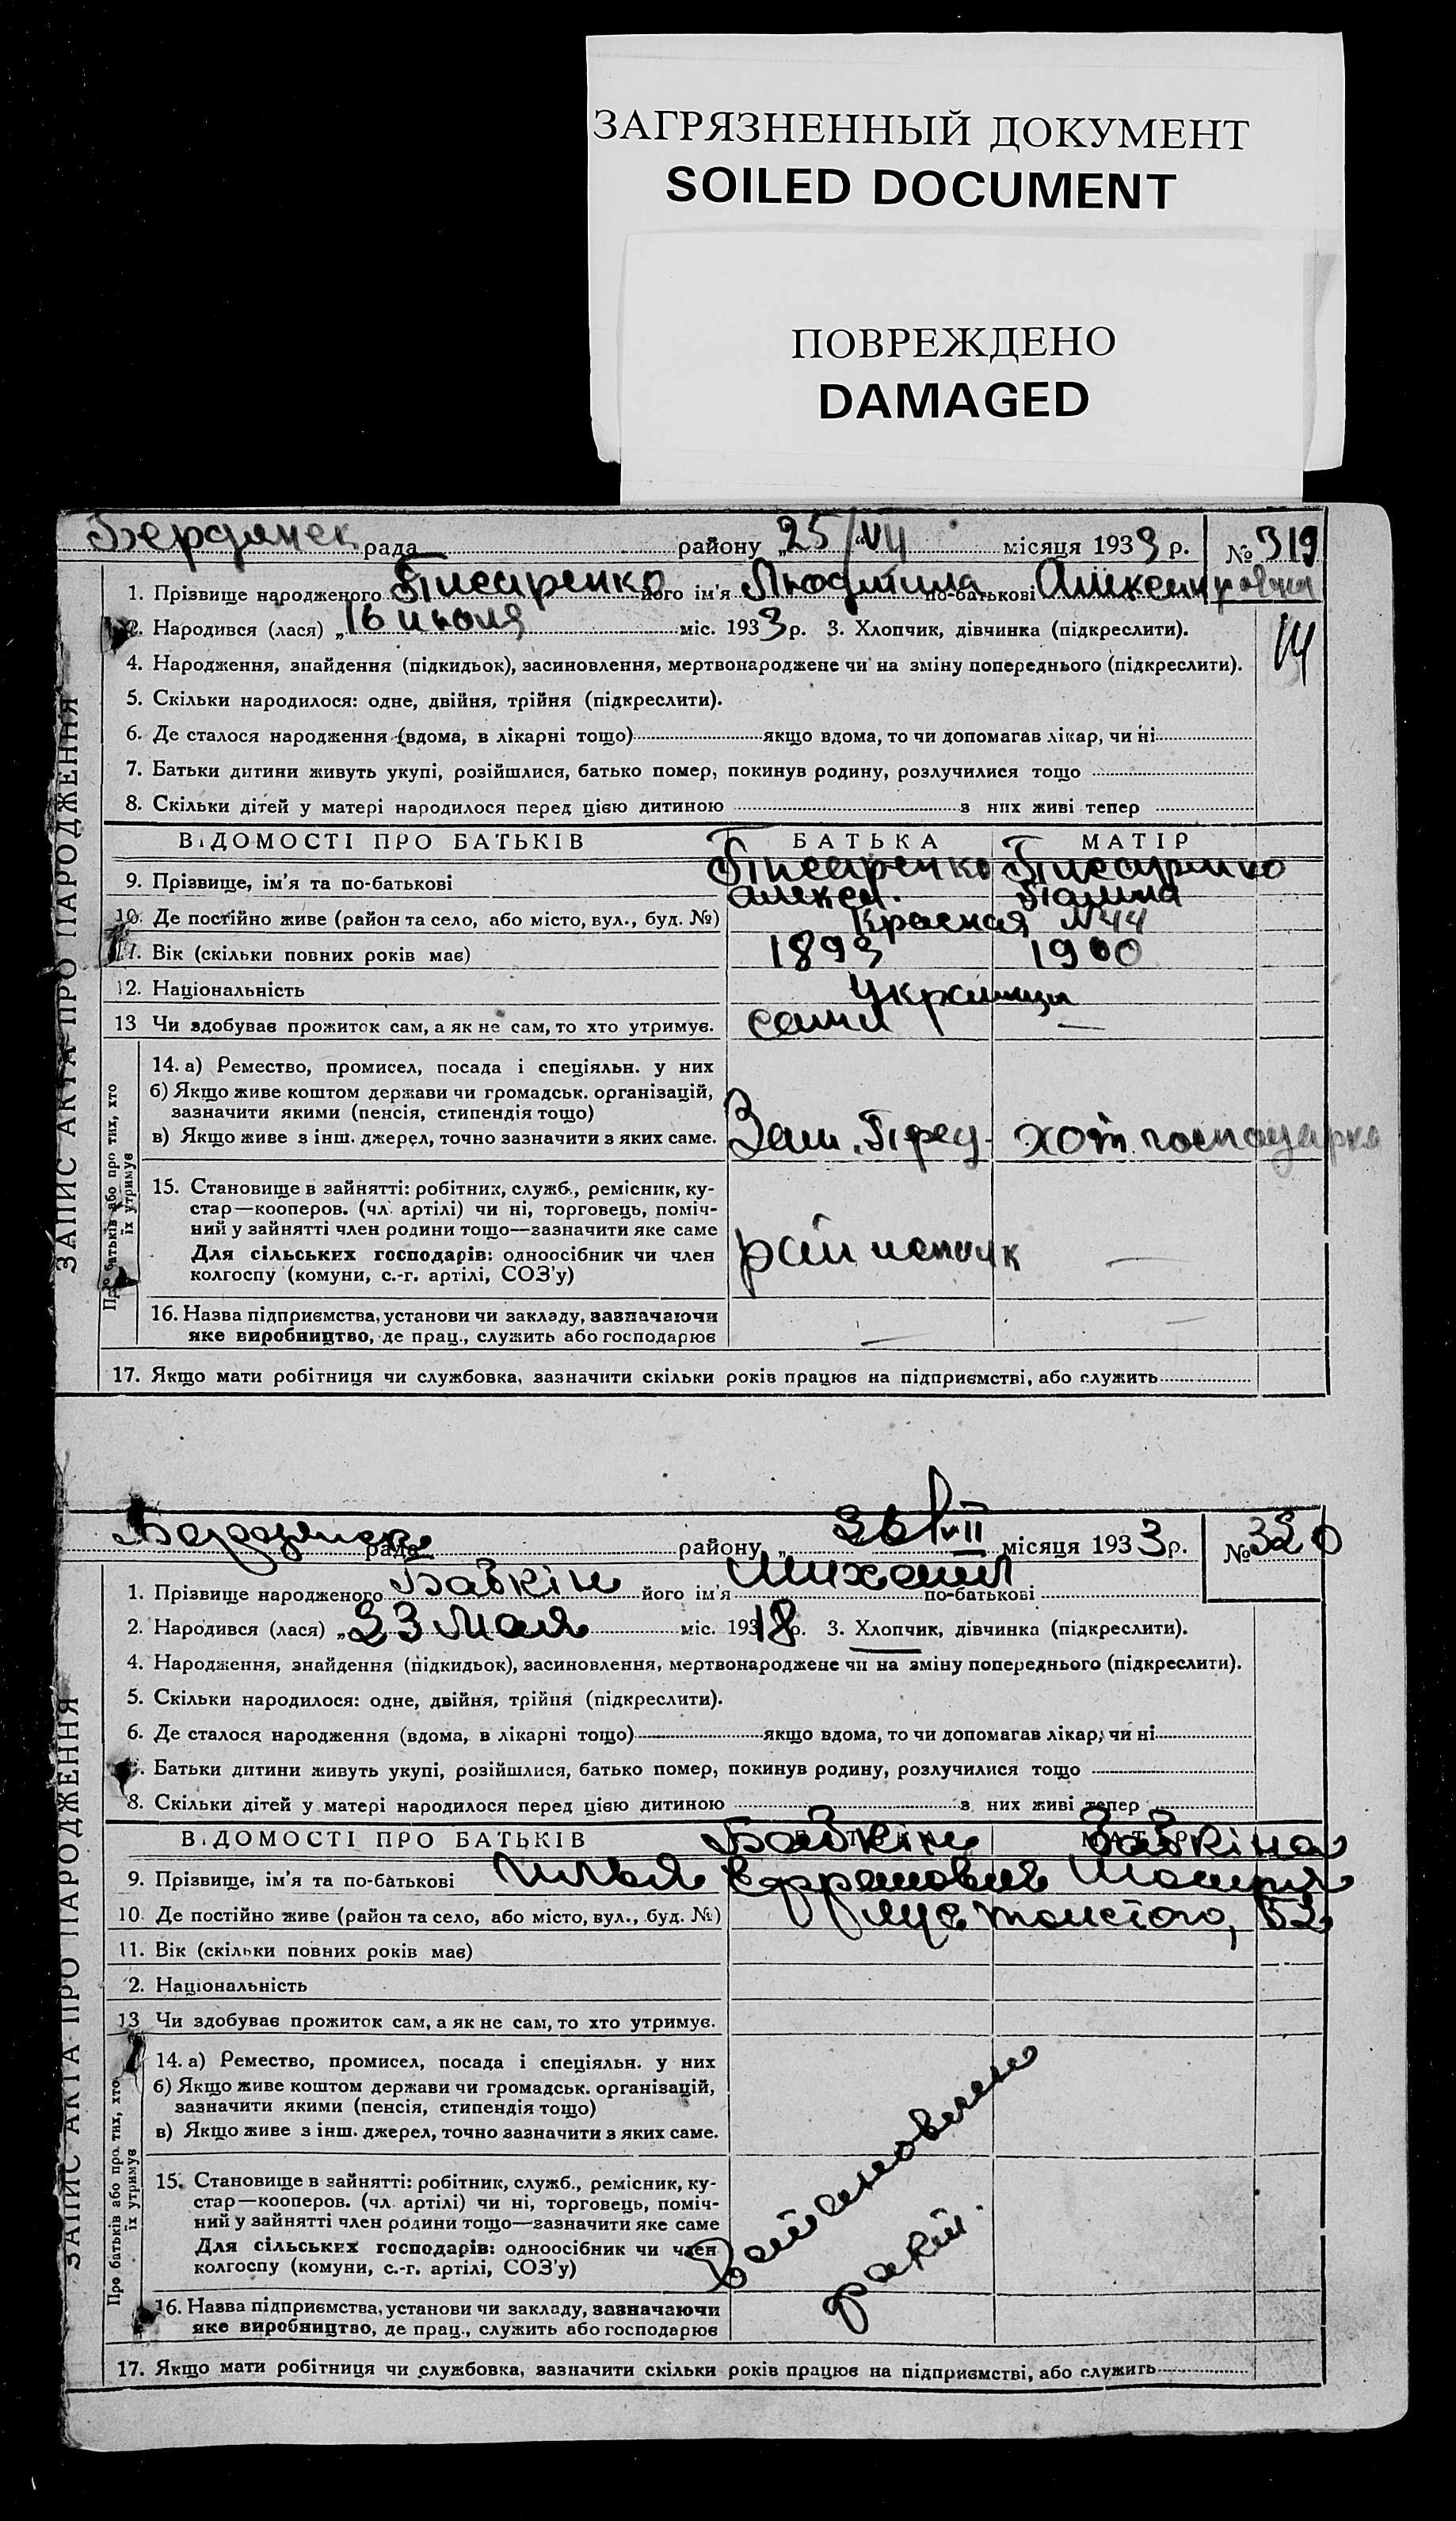 ЗАГРЯЗНЕННЫЙ ДОКУМЕНТ
SOILED DOCUMENT
ПОВРЕЖДЕНО
DAMAGED
ЗАПИС АКТА ПРО НАРОДЖЕННЯ
Бердянск рада району „25/VII місяця 1933 р. № 319
1. Прізвище народженого Писаренко його ім'я Людмила по-батькові
2. Народився (лася) „16 июля міс. 1933 р. 3. Хлопчик, дівчинка (підкреслити).
4. Народження, знайдення (підкидьок), засиновлення, мертвонароджене чи на зміну попереднього (підкреслити).
5. Скільки народилося: одне, двійня, трійня (підкреслити).
6. Де сталося народження (вдома, в лікарні тощо) якщо вдома, то чи допомагав лікар, чи ні
7. Батьки дитини живуть укупі, розійшлися, батько помер, покинув родину, розлучилися тощо
8. Скільки дітей у матері народилося перед цією дитиною з них живі тепер
ВІДОМОСТІ ПРО БАТЬКІВ БАТЬКА МАТІР
9. Прізвище, ім'я та по-батькові Писаренко Алексей. Писаренко
10. Де постійно живе (район та село, або місто, вул., буд. №) Красная N 44
11. Вік (скільки повних років має) 1893 1900
12. Національність Украинцы
13 Чи здобував прожиток сам, а як не сам, то хто утримує. сами —
Про батьків або про тих, хто їх утримує
14. а) Ремество, промисел, посада і спеціяльн. у них
б) Якщо живе коштом держави чи громадськ. організацій,
зазначити якими (пенсія, стипендія тощо)
в) Якщо живе з інш. джерел, точно зазначити з яких саме. Зам. Пред.
15. Становище в зайнятті: робітник, служб., ремісник, ку-
стар—кооперов. (чл. артілі) чи ні, торговець, поміч-
ний у зайнятті член родини тощо—зазначити яке саме
Для сільських господарів: одноосібник чи член —
колгоспу (комуни, с.-г. артілі, СОЗ'у)
16. Назва підприємства, установи чи закладу, зазначаючи
яке виробництво, де прац., служить або господарює — —
17. Якщо мати робітниця чи службовка, зазначити скільки років працює на підприємстві, або служить
ЗАПИС АКТА ПРО НАРОДЖЕННЯ
рада району „26/VII місяця 1933 р. № 320
1. Прізвище народженого Бабкін його ім'я Михаил по-батькові
2. Народився (лася) „23 мая міс. 1918 р. 3. Хлопчик, дівчинка (підкреслити).
4. Народження, знайдення (підкидьок), засиновлення, мертвонароджене чи на зміну попереднього (підкреслити).
5. Скільки народилося: одне, двійня, трійня (підкреслити).
6. Де сталося народження (вдома, в лікарні тощо) якщо вдома, то чи допомагав лікар, чи ні
7. Батьки дитини живуть укупі, розійшлися, батько помер, покинув родину, розлучилися тощо
8. Скільки дітей у матері народилося перед цією дитиною з них живі тепер
ВІДОМОСТІ ПРО БАТЬКІВ Бабкін Бабкіна
9. Прізвище, ім'я та по-батькові Илья Мария
10. Де постійно живе (район та село, або місто, вул., буд. №) Толстого, 52
11. Вік (скільки повних років має)
12. Національність
13 Чи здобував прожиток сам, а як не сам, то хто утримує.
Про батьків або про тих, хто їх утримує
14. а) Ремество, промисел, посада і спеціяльн. у них
б) Якщо живе коштом держави чи громадськ. організацій,
зазначити якими (пенсія, стипендія тощо)
в) Якщо живе з інш. джерел, точно зазначити з яких саме.
15. Становище в зайнятті: робітник, служб., ремісник, ку-
стар—кооперов. (чл. артілі) чи ні, торговець, поміч-
ний у зайнятті член родини тощо—зазначити яке саме
Для сільських господарів: одноосібник чи член
колгоспу (комуни, с.-г. артілі, СОЗ'у)
16. Назва підприємства, установи чи закладу, зазначаючи
яке виробництво, де прац., служить або господарює
17. Якщо мати робітниця чи службовка, зазначити скільки років працює на підприємстві, або служить